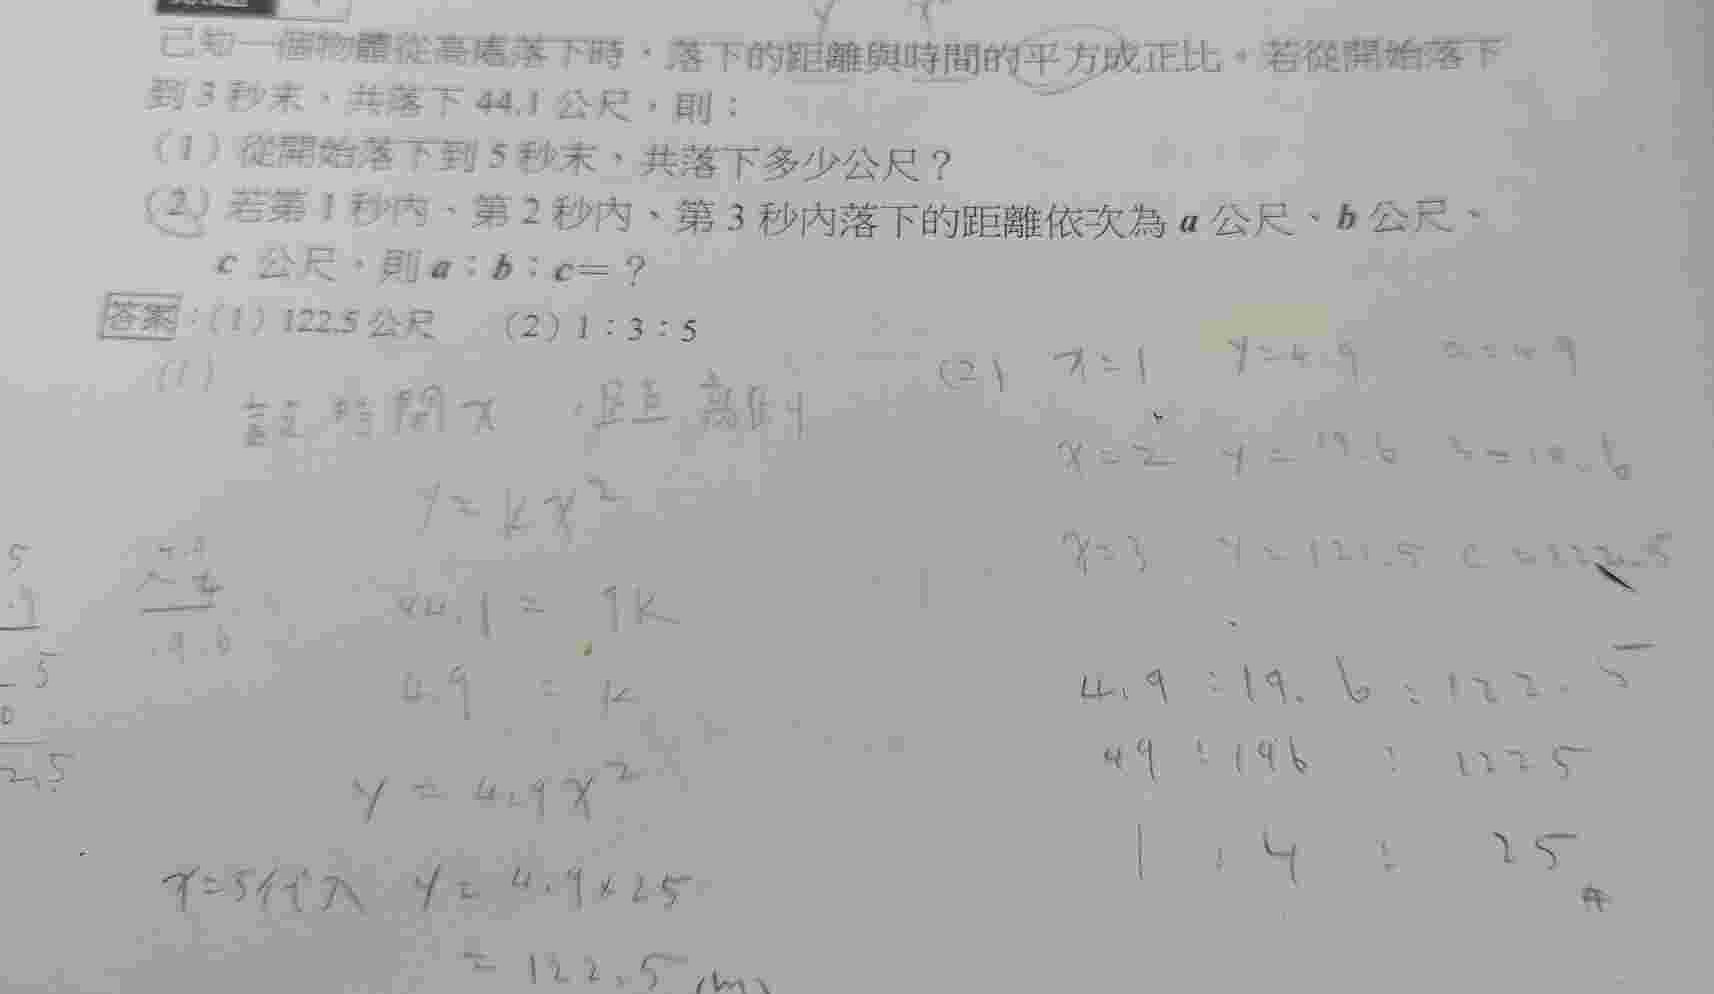 y x²
已知一個物體從高處落下時，落下的距離與時間的平方成正比。若從開始落下
到3秒末，共落下44.1公尺，則：
（1）從開始落下到5秒末，共落下多少公尺？
（2）若第1秒內、第2秒內、第3秒內落下的距離依次為a公尺、b公尺、
c公尺，則a：b：c＝？
答案：（1）122.5公尺 （2）1：3：5
(1)
設時間x 距離y
y=kx²
44.1=9k
4.9=k
y=4.9x²
x=5代入 y=4.9×25
=122.5(m)
(2) x=1 y=4.9 a=4.9
x=2 y=19.6 b=19.6
x=3 y=122.5 c=122.5
4.9:19.6:122.5
49:196:1225
1:4:25#